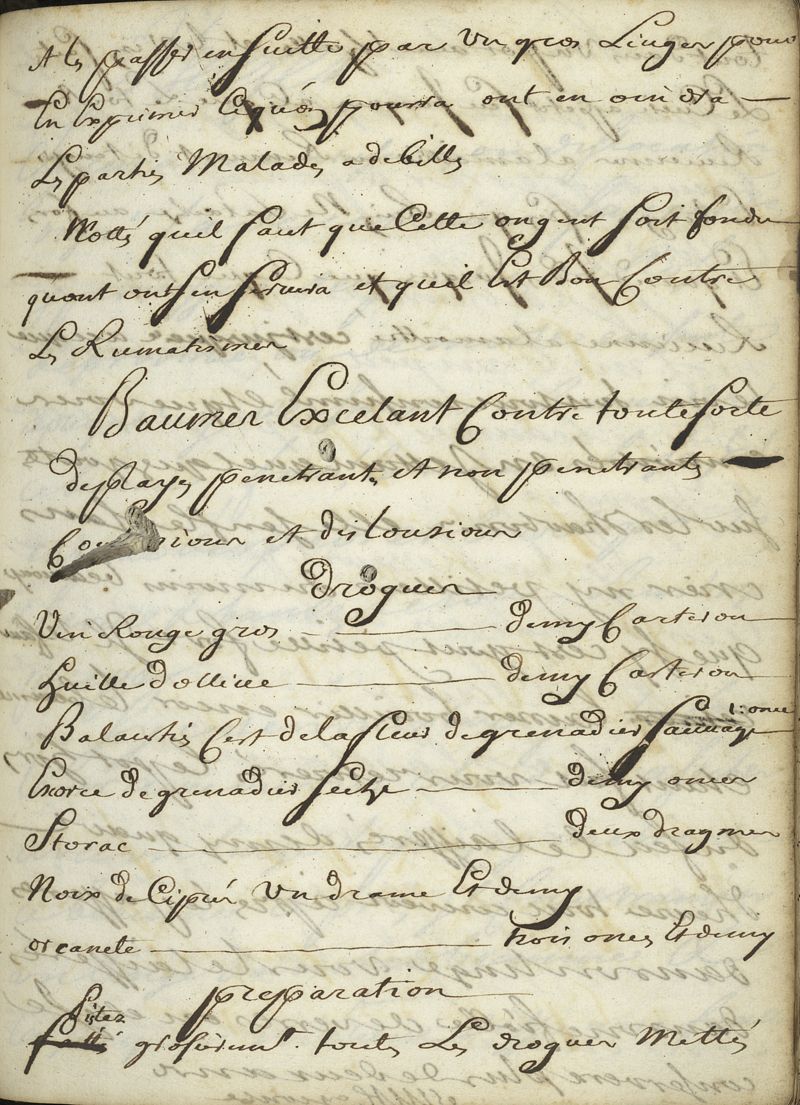 Ales passer ensuitte par un gros Linger pour
En Exprimer Ce quón pourra ont en oindra
Les partis Malades adebilles
Nottés quil faut que Cette ongent soit fondu
quont onts en servira et quil Est Bon Contre
Les Rumatismes
Baumer Excelant Contre toute sorte
de playes penetrantes et non penetrants
et dislousiour
Droguer
Vin Rouge gros demy Carteron
huille dollive demy Carteron
Balaustis C'est de la fleur de grenadier sauuage 1: once
Exorce de grenadier seche demy oncer
Storac deux dragmer
Noix de Ciprér un drame Et demy
orcanete trois onces Et demy
preparation
Pilez
grosieremt. toutes Les droguer Mettés